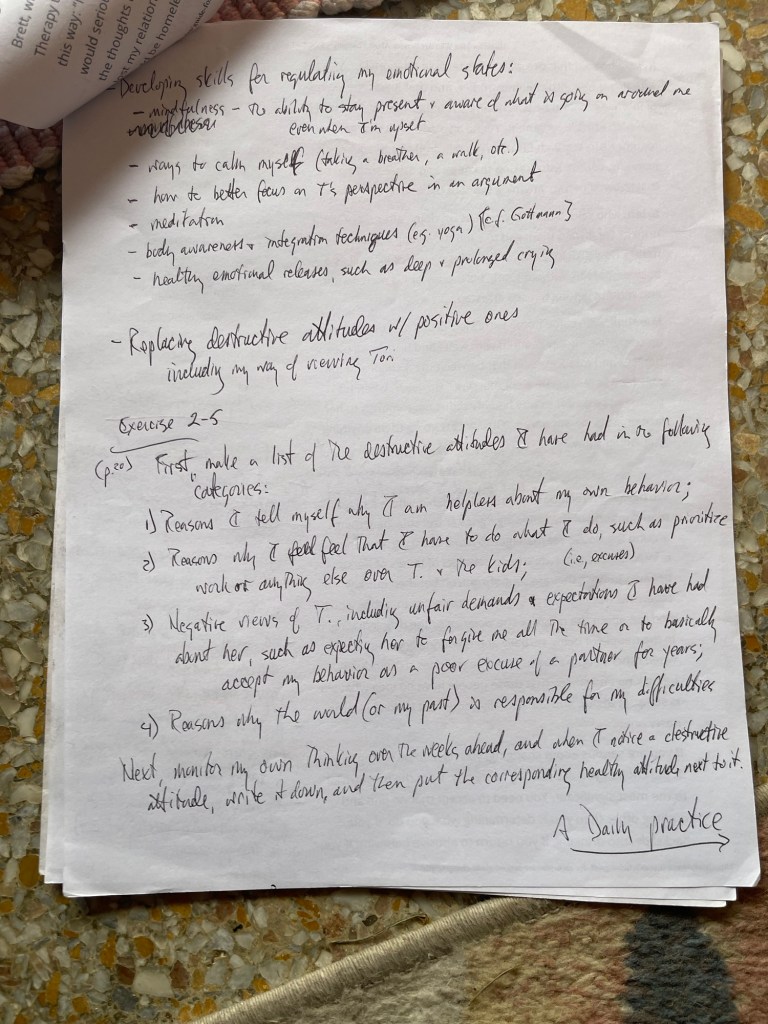 Brett, w
Therapy
this way: "
would seriou
the thoughts
st my relation
be homel
- Developing skills for regulating my emotional states:
- mindfulness - the ability to stay present & aware of what is going on around me
even when I'm upset
- ways to calm myself (taking a breather, a walk, etc.)
- how to better focus on T's perspective in an argument
- meditation
- body awareness & integration techniques (eg. yoga) [c.f. Gottmann}
- healthy emotional releases, such as deep & prolonged crying
- Replacing destructive attitudes w/ positive ones
including my way of viewing Tori
Exercise 2-5
(p.20) First, make a list of the destructive attitudes I have had in the following
categories:
1) Reasons I tell myself why I am helpless about my own behavior;
2) Reasons why I feel that I have to do what I do, such as prioritize
work or anything else over T. & the kids; (i.e, excuses)
3) Negative views of T., including unfair demands & expectations I have had
about her, such as expecting her to forgive me all the time or to basically
accept my behavior as a poor excuse of a partner for years;
4) Reasons why the world (or my past) is responsible for my difficulties
Next, monitor my own thinking over the weeks ahead, and when I notice a destructive
attitude, write it down, and then put the corresponding healthy attitude next to it.
A Daily practice